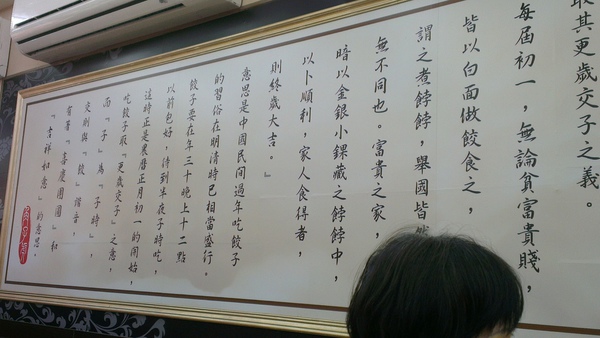 取其更歲交子之義。
每屆初一，無論貧富貴賤，
皆以白面做餃食之，
謂之煮餑餑，舉國皆然
無不同也。富貴之家，
暗以金銀小錁藏之餑餑中，
以卜順利，家人食得者，
則終歲大吉。』
意思是中國民間過年吃餃子
的習俗在明清時已相當盛行。
餃子要在年三十晚上十二點
以前包好，待到半夜子時吃，
這時正是農曆正月初一的開始，
吃餃子取『更歲交子』之意，
而『子』為『子時』，
交則與『餃』諧音，
有著『喜慶團圓』和
『吉祥如意』的意思。